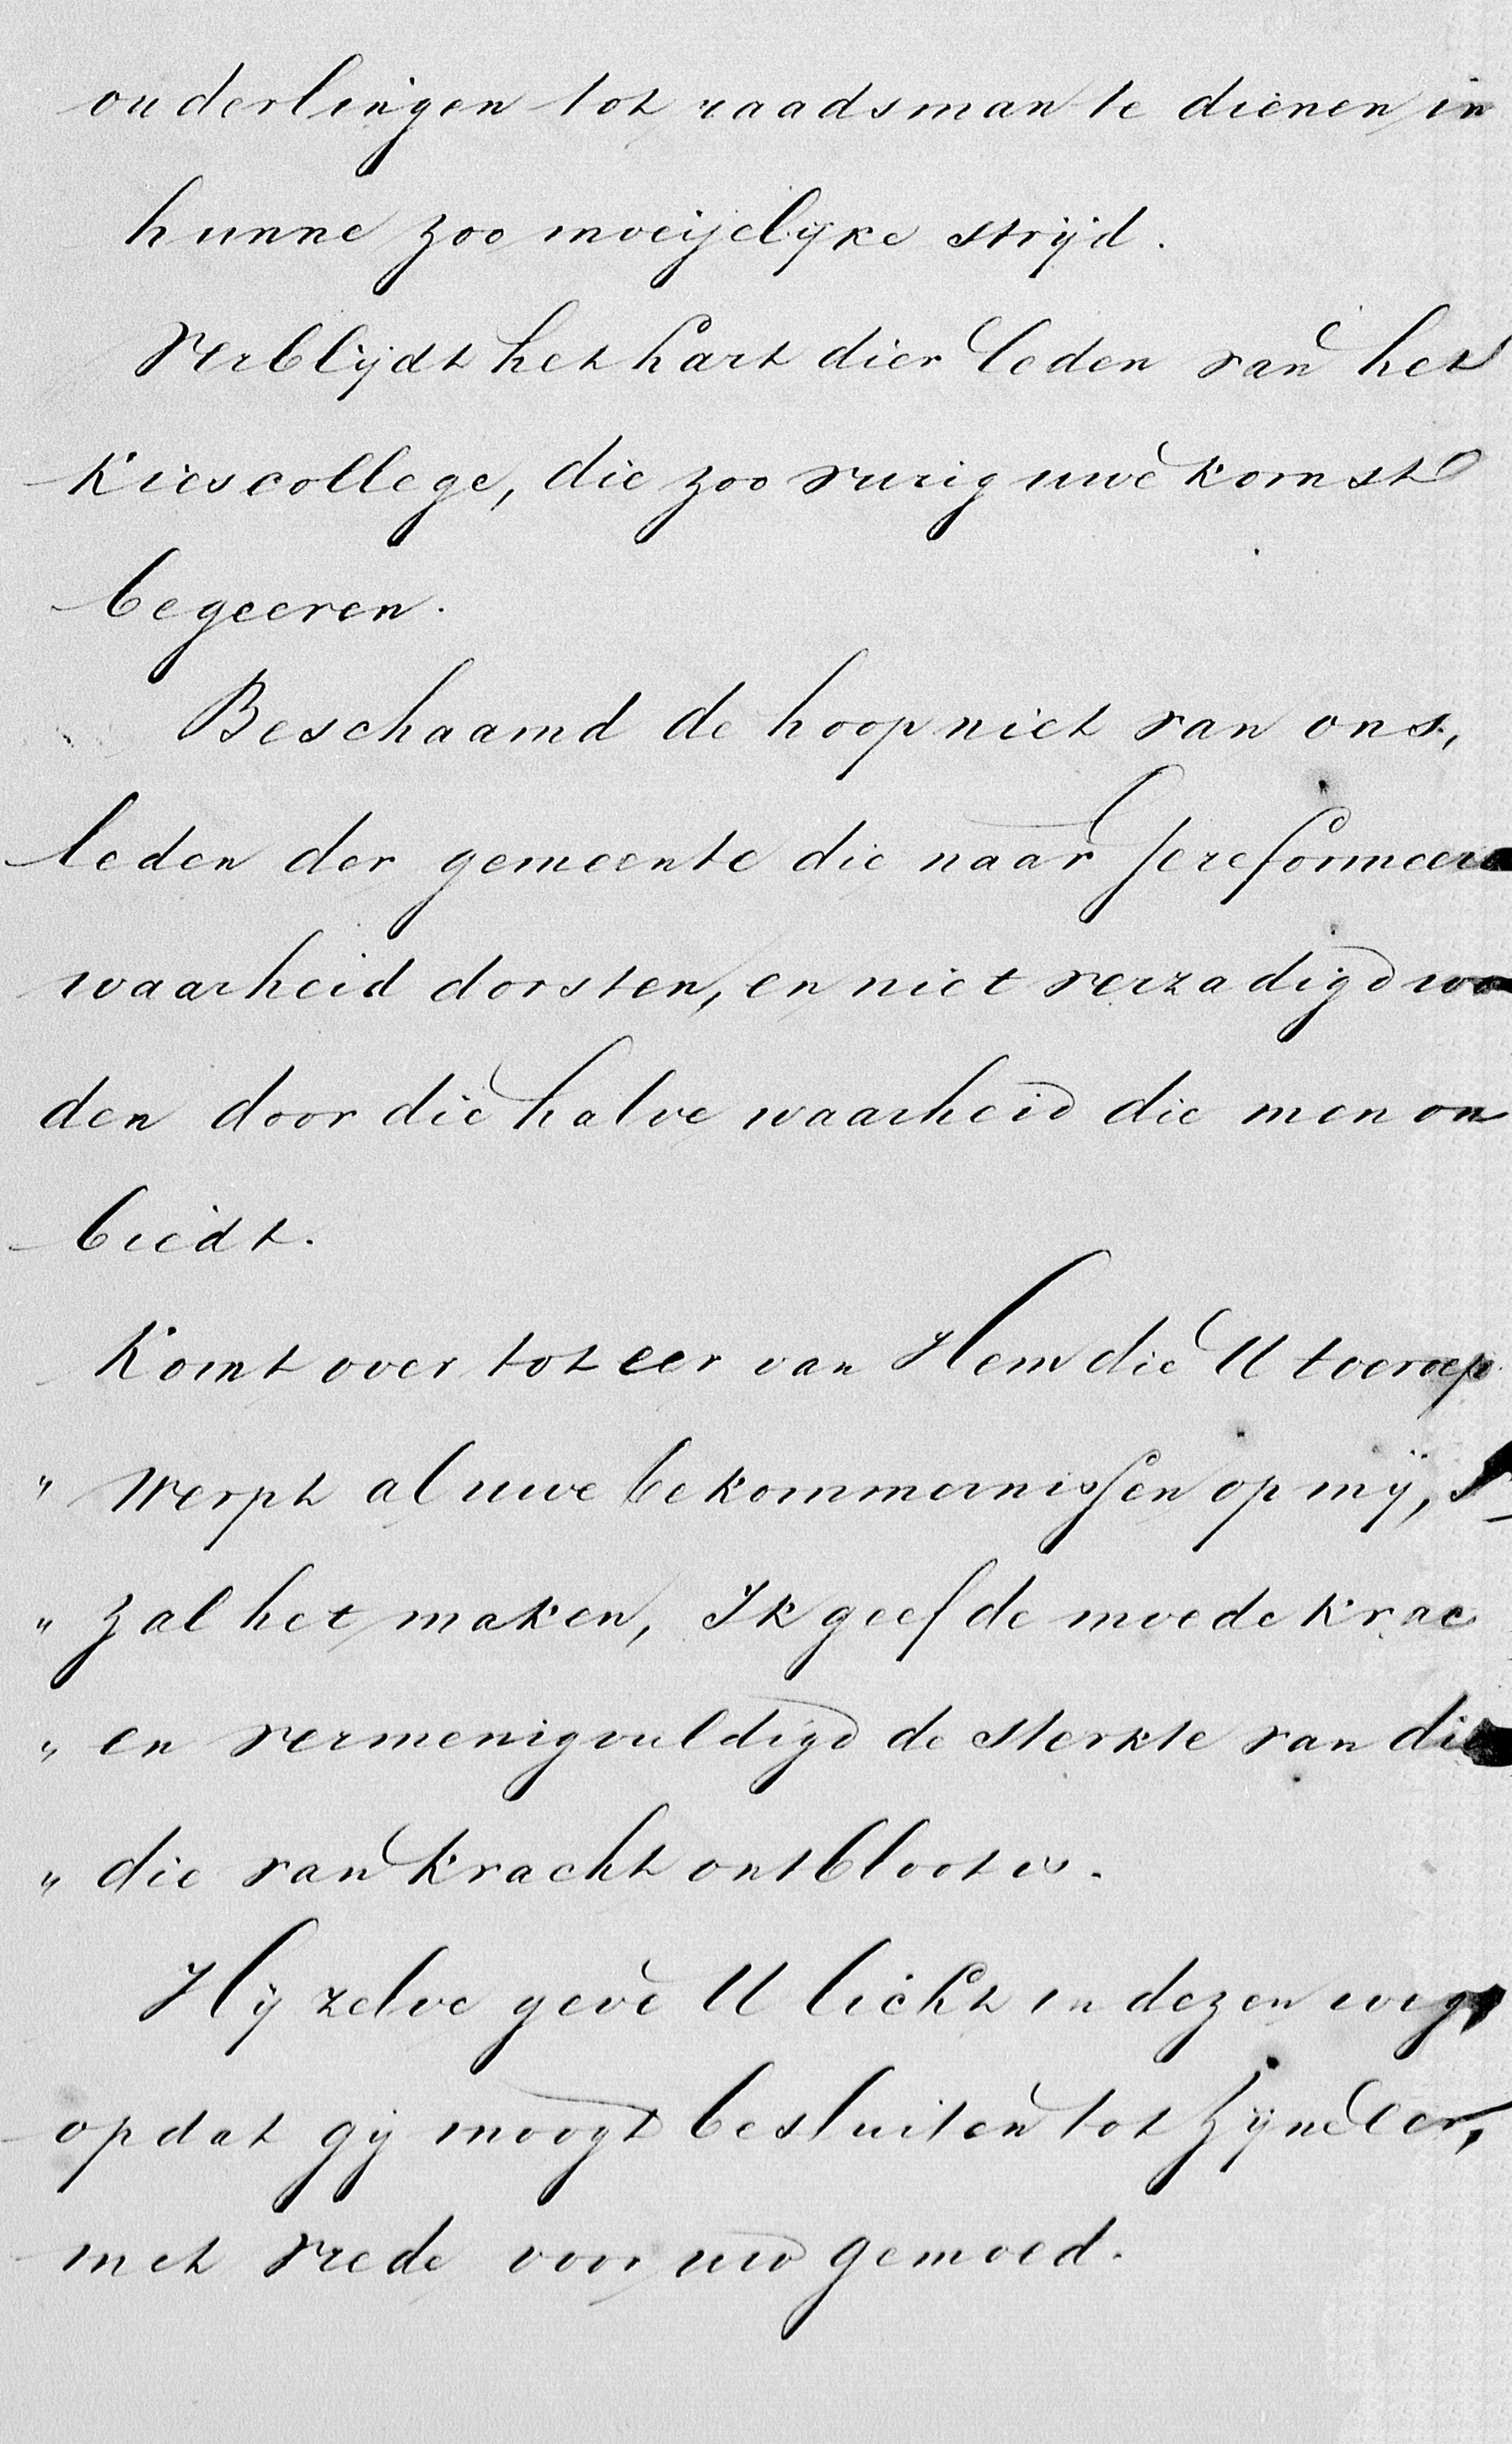 ouderlingen tot raadsman te dienen in
hunne zoo moeijelijke strijd.
Verblijdt het hart dier leden van het
Kiescollege, die zoo vurig uwe komst
begeeren.
Beschaamd de hoop niet van ons,
leden der gemeente die naar Gereformeer
waarheid dorsten, en niet verzadigd wo
den door die halve waarheid die men on
biedt.
Komt over tot eer van Hem die U toeroep
" Werpt al uwe bekommernissen op mij,
" zal het maken, Ik geef de moede krac
" en vermenigvuldigd de sterkte van die
" die van kracht ontbloot is.
Hij zelve geve U licht in dezen weg
opdat gij moogt besluiten tot Zijne eer,
met vrede voor uw gemoed.